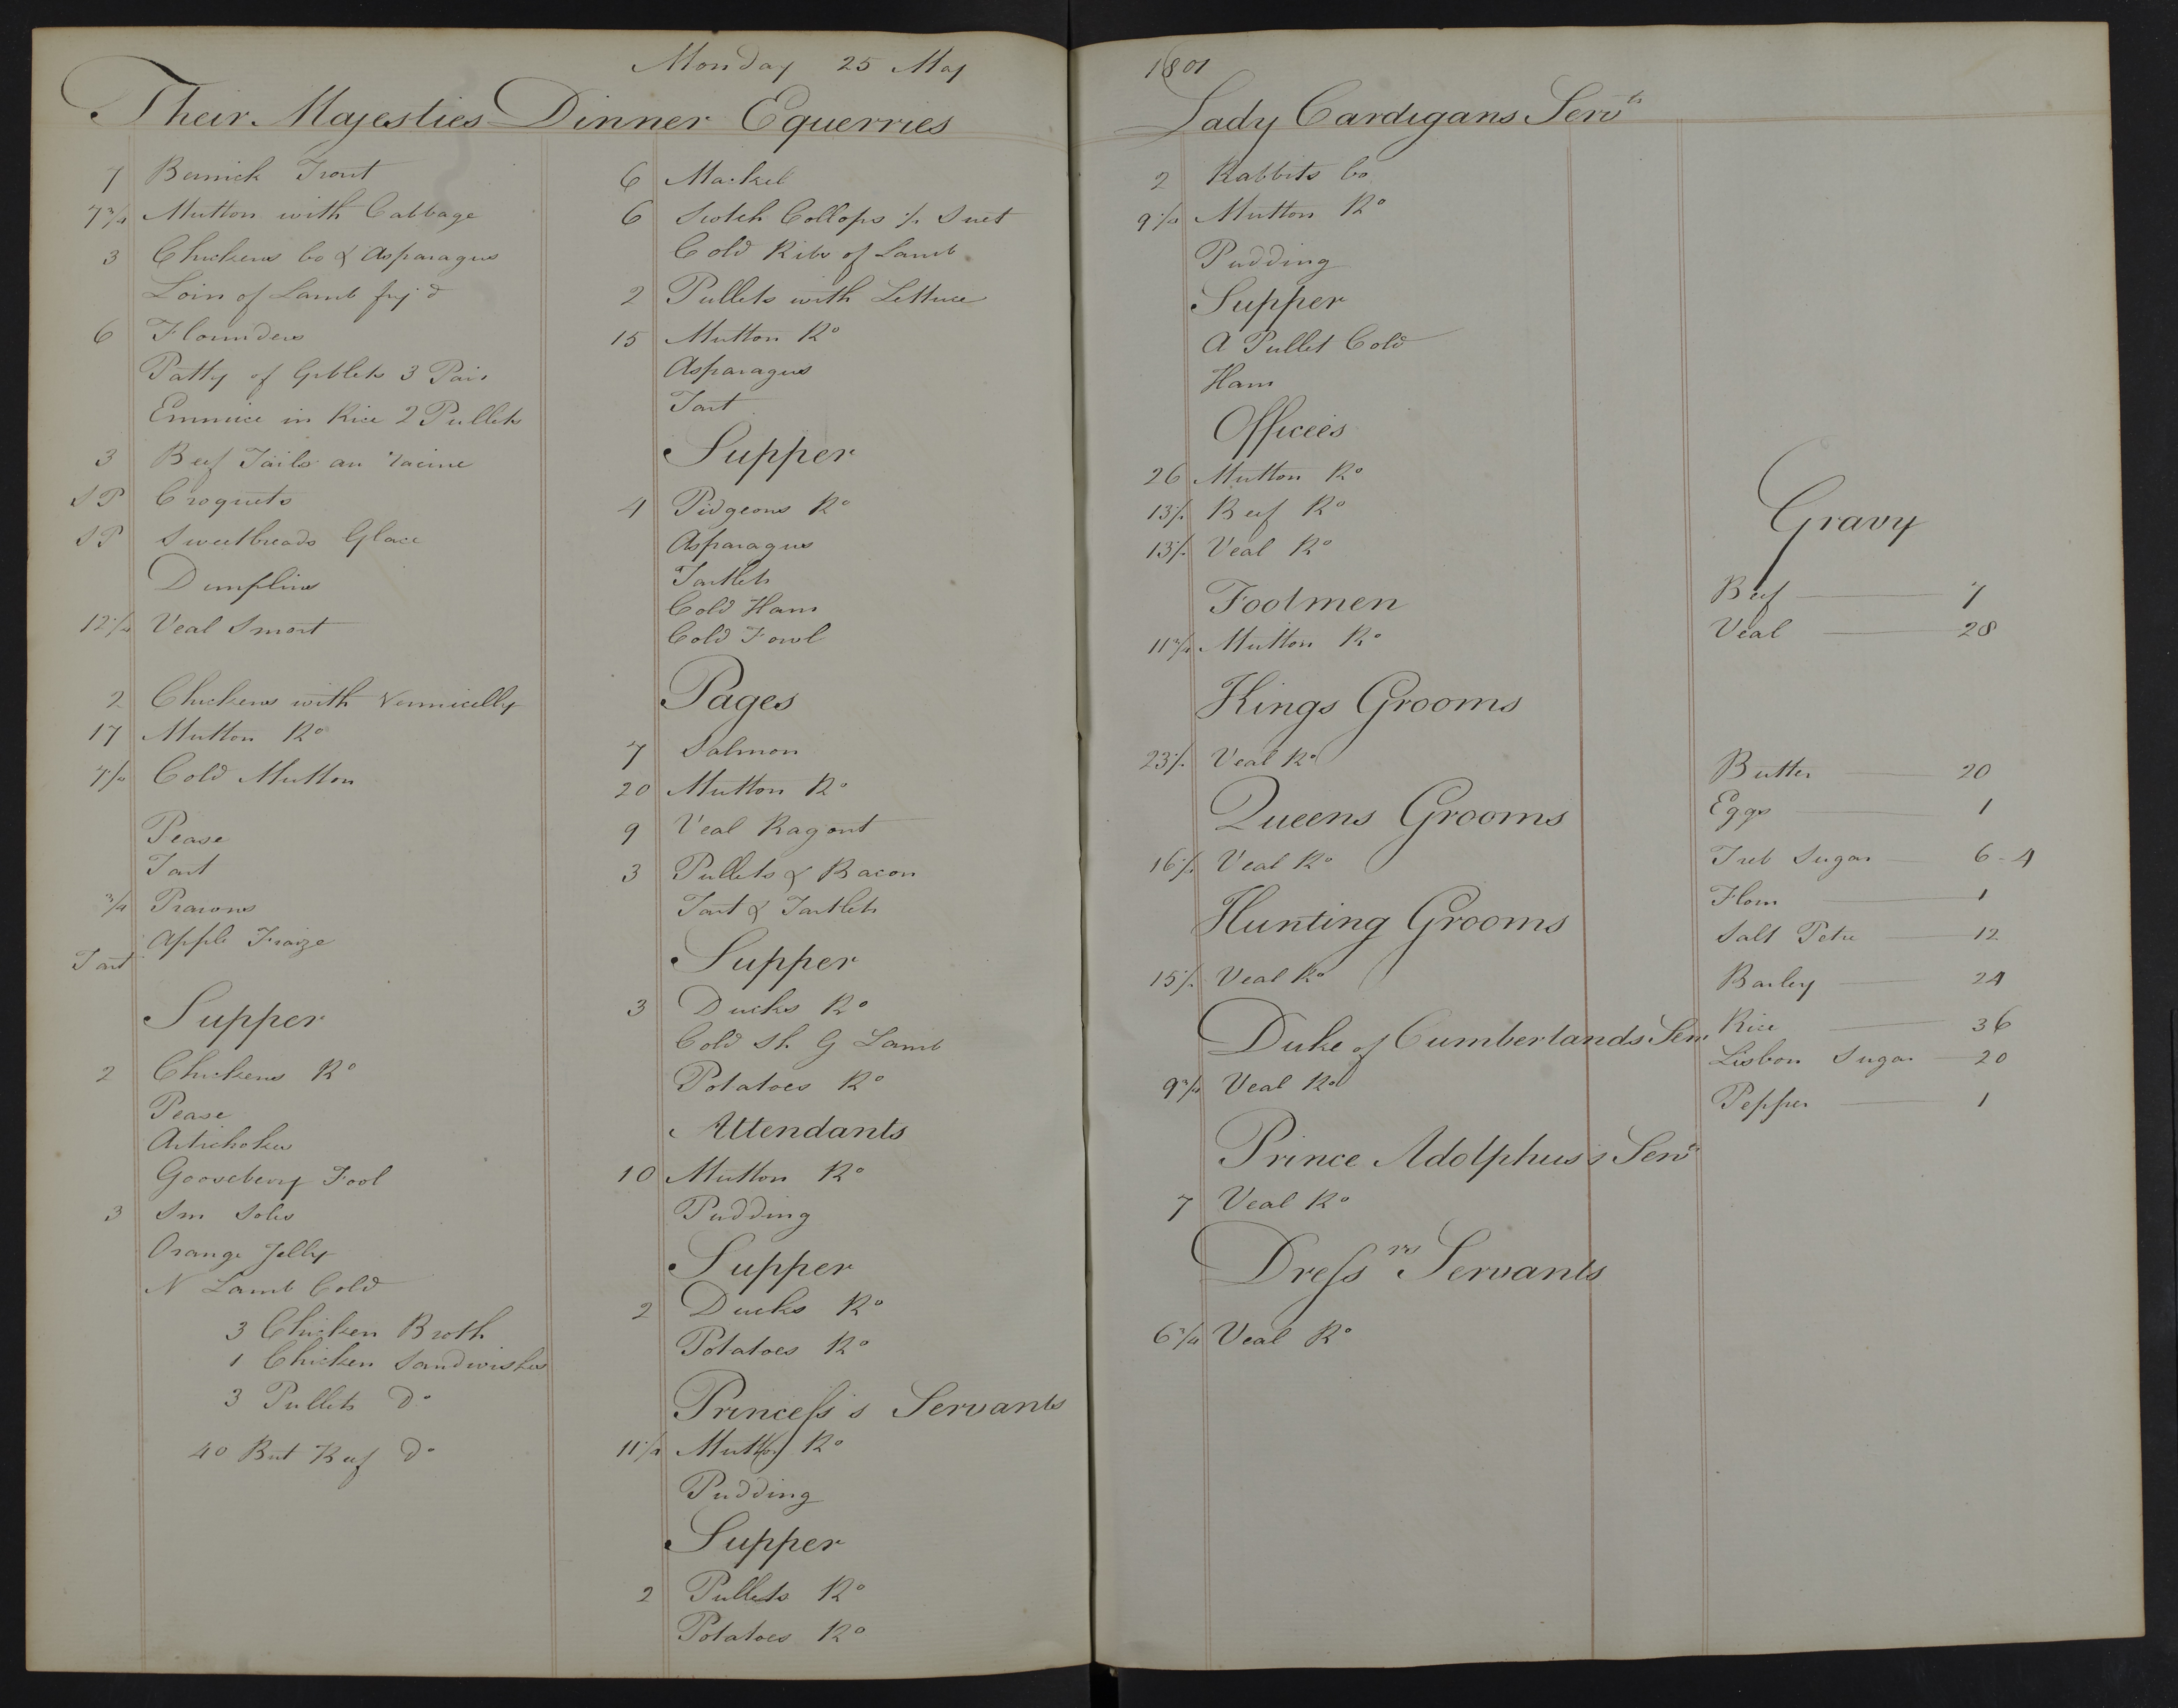 Monday 25 May
Their Majesties Dinner
7 Berwick Trout
7 3/4 Mutton with Cabbage
3 Chickens bo & Asparagus
Loin of Lamb fry'd
6 Flounders
Patty of Giblets 3 Pair
Emmice in Rice 2 Pullets
3 Beef Tails au racine
SP Croquets
SP Sweetbreads Glace
Dumplins
12 1/4 Veal Smort
2 Chickens with Vermicelly
17 Mutton Ro
Cold Mutton
Pease
Tart
3/4 Prawns
Apple Fraize
Tart
Supper
2 Chickens Ro
Pease
Artichokes
Gooseberry Fool
3 Sm Soles
Orange Jelly
N Lamb Cold
3 Chicken Broth
1 Chicken Sandwishes
3 Pullets Do
40 But Beef Do
Equerries
6 Markel
6 Scotch Collops 1/2 Suet
Cold Ribs of Lamb
2 Pullets with Lettuce
15 Mutton Ro
Asparagus
Tart
Supper
4 Pidgeons Ro
Asparagus
Tartlets
Cold Ham
Cold Fowl
Pages
7 Salmon
20 Mutton Ro
9 Veal Ragout
3 Pullets & Bacon
Tart & Tartlets
Supper
3 Ducks Ro
Cold Sh G Lamb
Potatoes Ro
Attendants
10 Mutton Ro
Pudding
Supper
2 Ducks Ro
Potatoes Ro
Princess's Servants
11 1/4 Mutton Ro
Pudding
Supper
2 Pullets Ro
Potatoes Ro
1801
Lady Cardigans Servts
2 Rabbits bo
9 1/4 Mutton Ro
Pudding
Supper
A Pullet Cold
Ham
Officees
26 Mutton Ro
13 1/2 Beef Ro
13 1/2 Veal Ro
Footmen
11 3/4 Mutton Ro
Kings Grooms
23 1/2 Veal Ro
Queens Grooms
16 1/2 Veal Ro
Hunting Grooms
15 1/2 Veal Ro
Duke of Cumberlands Serv
9 3/4 Veal Ro
Prince Adolphus's Servts
7 Veal Ro
Dressrs Servants
6 3/4 Veal Ro
Gravy
Beef 7
Veal 28
Butter 20
Eggs 1
Treb Sugar 6-4
Flour 1
Salt Petre 12
Barley 24
Rice 36
Lisbon Sugar 20
Pepper 1